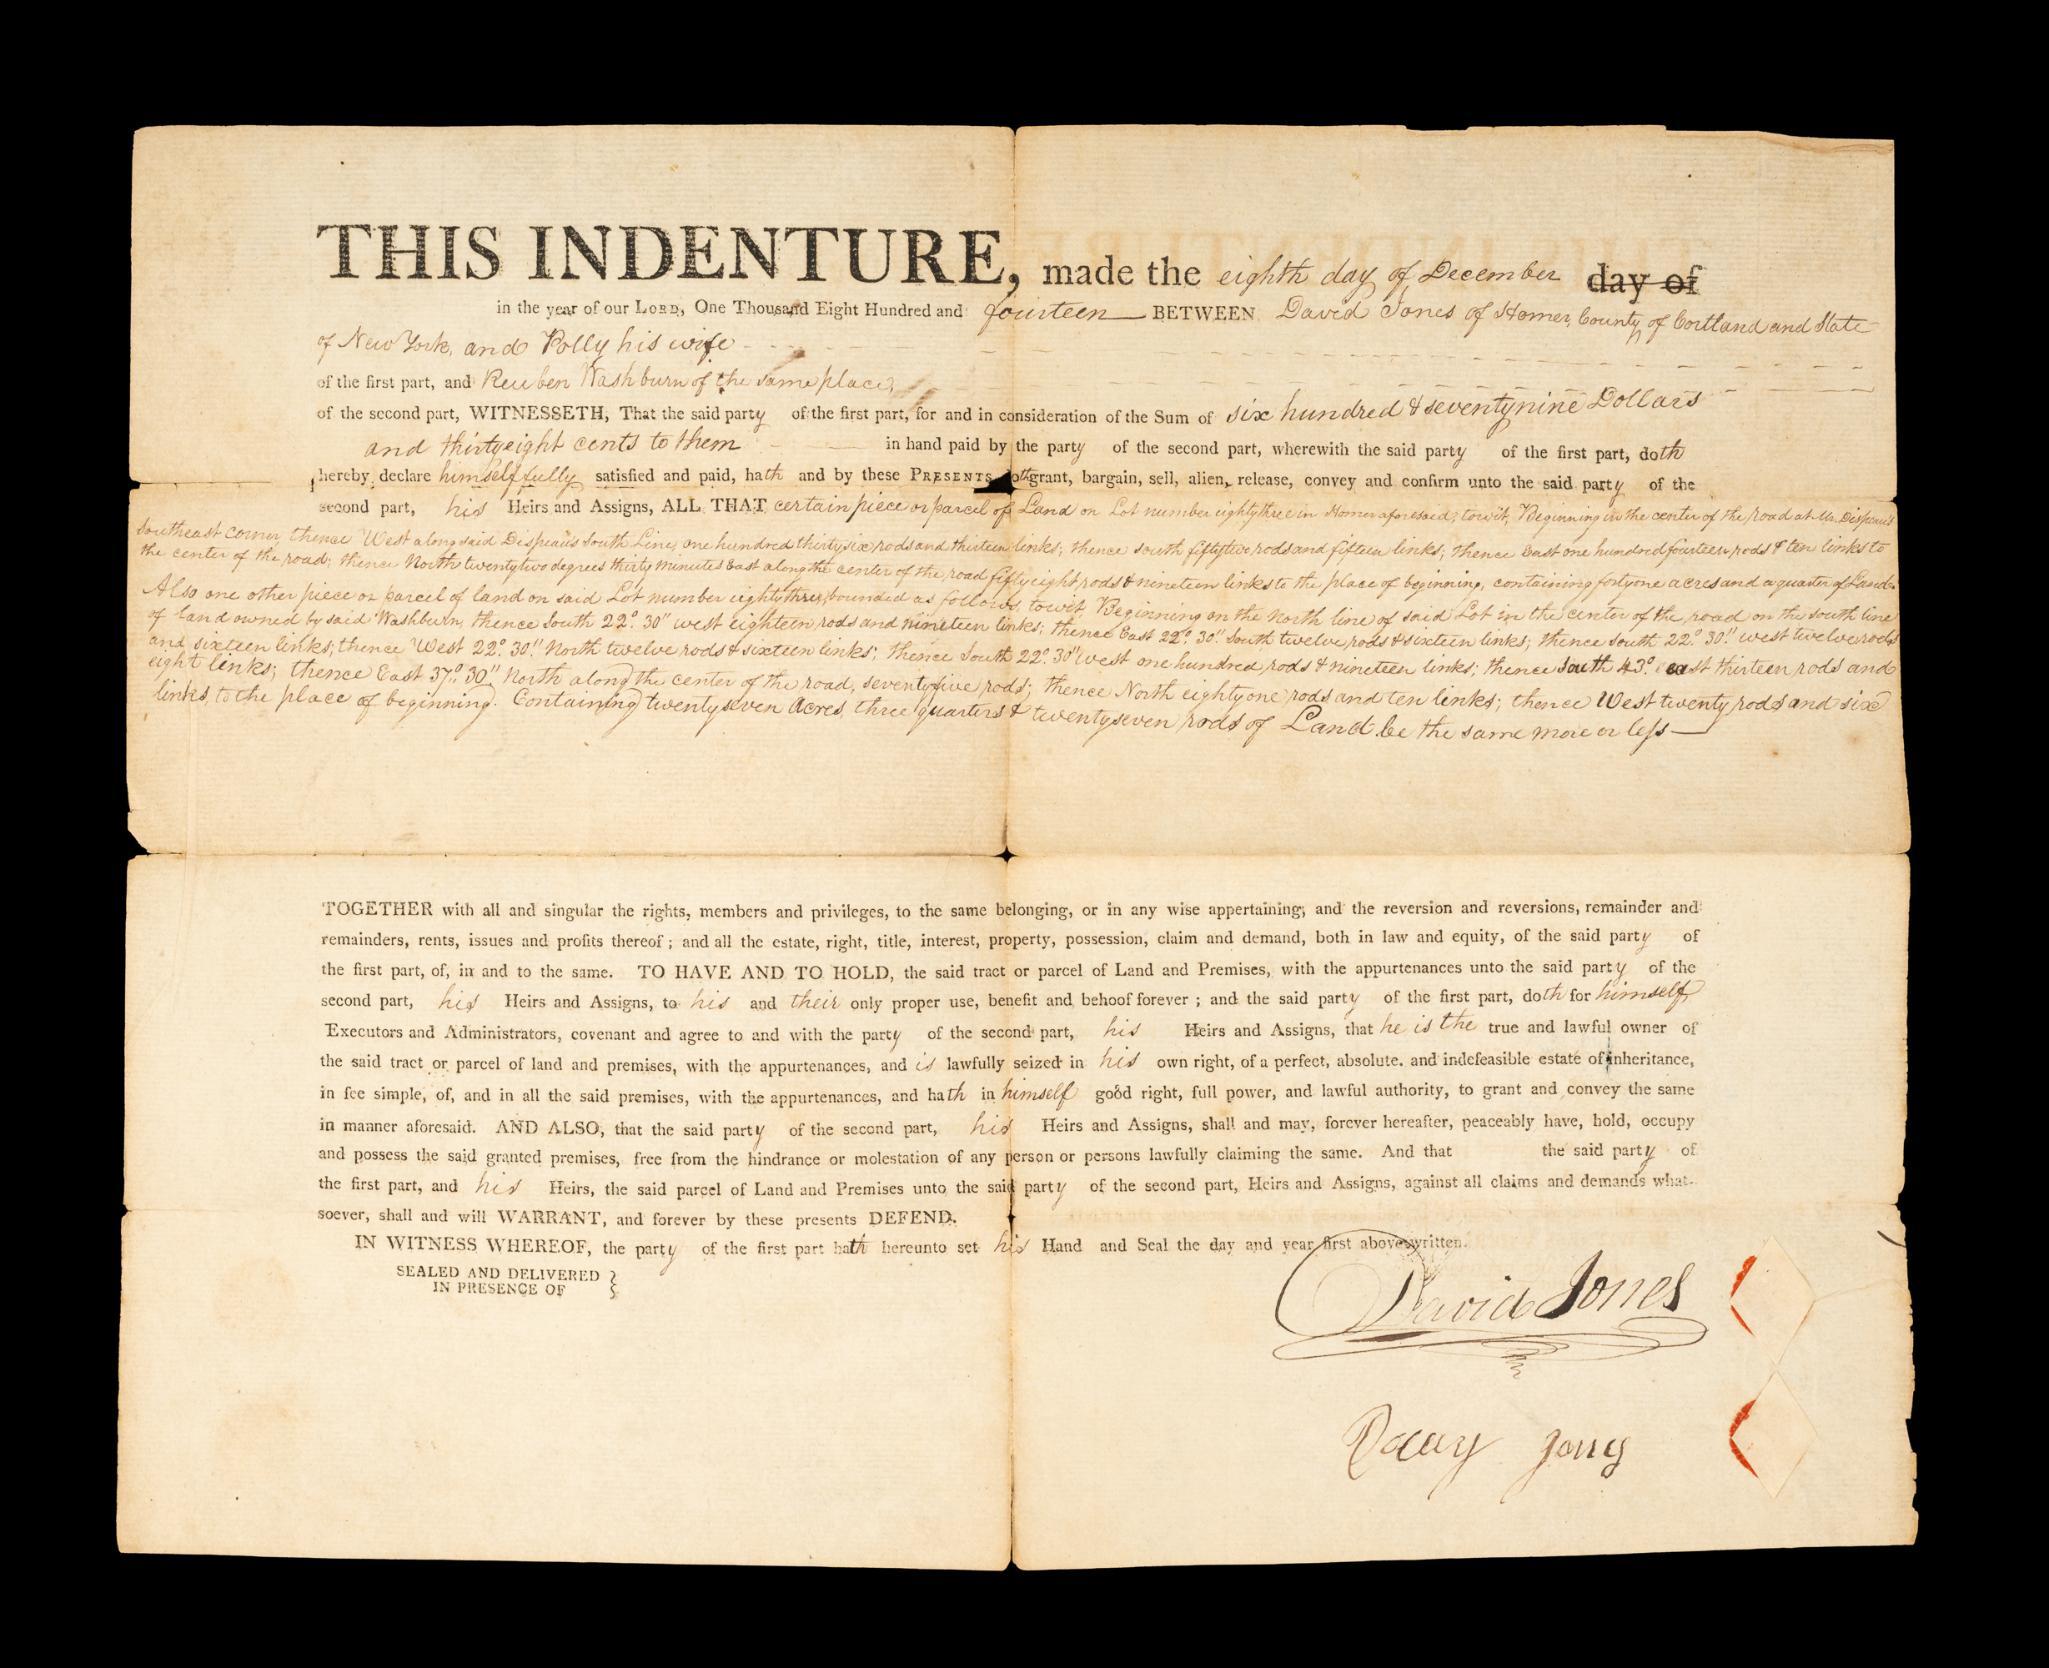 THIS INDENTURE, made the eighth day of December day of
in the year of our LORD, One Thousand Eight Hundred and fourteen BETWEEN David Jones of Homer, County of Cortland and State
of New York, and Polly his wife
of the first part, and Reuben Washburn of the same place,
of the second part, WITNESSETH, That the said party of the first part, for and in consideration of the Sum of six hundred & seventynine Dollars
and thirtyeight cents to them in hand paid by the party of the second part, wherewith the said party of the first part, doth
hereby declare himself fully satisfied and paid, hath and by these PRESENTS doth grant, bargain, sell, alien, release, convey and confirm unto the said party of the
second part, his Heirs and Assigns, ALL THAT certain piece or parcel of Land on Lot number eightythree in Homer aforesaid, towit, Beginning in the center of the road at Mr. Dispeau's
Southeast corner, thence West along said Dispeau's South Line, one hundred thirtysix rods and thirteen links; thence south fiftytwo rods and fifteen links; thence East one hundred fourteen rods & ten links to
the center of the road; thence North twentytwo degrees thirty minutes East along the center of the road fiftyeight rods & nineteen links to the place of beginning, containing fortyone acres and a quarter of Land.
Also one other piece or parcel of land on said Lot number eightythree, bounded as follows, towit, Beginning on the North line of said Lot in the center of the road on the south line
of land owned by said Washburn, thence South 22° 30" west eighteen rods and nineteen links; thence East 22° 30" South twelve rods & sixteen links; thence South 22° 30" west twelve rods
and sixteen links; thence West 22° 30" North twelve rods & sixteen links; thence South 22° 30" west one hundred rods & nineteen links; thence South 43° east thirteen rods and
eight links; thence East 37° 30" North along the center of the road, seventyfive rods; thence North eightyone rods and ten links; thence West twenty rods and six
links, to the place of beginning. Containing twentyseven Acres three quarters & twentyseven rods of Land be the same more or less
TOGETHER with all and singular the rights, members and privileges, to the same belonging, or in any wise appertaining, and the reversion and reversions, remainder and
remainders, rents, issues and profits thereof; and all the estate, right, title, interest, property, possession, claim and demand, both in law and equity, of the said party of
the first part, of, in and to the same. TO HAVE AND TO HOLD, the said tract or parcel of Land and Premises, with the appurtenances unto the said party of the
second part, his Heirs and Assigns, to his and their only proper use, benefit and behoof forever; and the said party of the first part, doth for himself,
Executors and Administrators, covenant and agree to and with the party of the second part, his Heirs and Assigns, that he is the true and lawful owner of
the said tract or parcel of land and premises, with the appurtenances, and is lawfully seized in his own right, of a perfect, absolute. and indefeasible estate of inheritance,
in fee simple, of, and in all the said premises, with the appurtenances, and hath in himself good right, full power, and lawful authority, to grant and convey the same
in manner aforesaid. AND ALSO, that the said party of the second part, his Heirs and Assigns, shall and may, forever hereafter, peaceably have, hold, occupy
and possess the said granted premises, free from the hindrance or molestation of any person or persons lawfully claiming the same. And that the said party of
the first part, and his Heirs, the said parcel of Land and Premises unto the said party of the second part, Heirs and Assigns, against all claims and demands what-
soever, shall and will WARRANT, and forever by these presents DEFEND.
IN WITNESS WHEREOF, the party of the first part hath hereunto set his Hand and Seal the day and year first above written.
SEALED AND DELIVERED
IN PRESENCE OF
David Jones